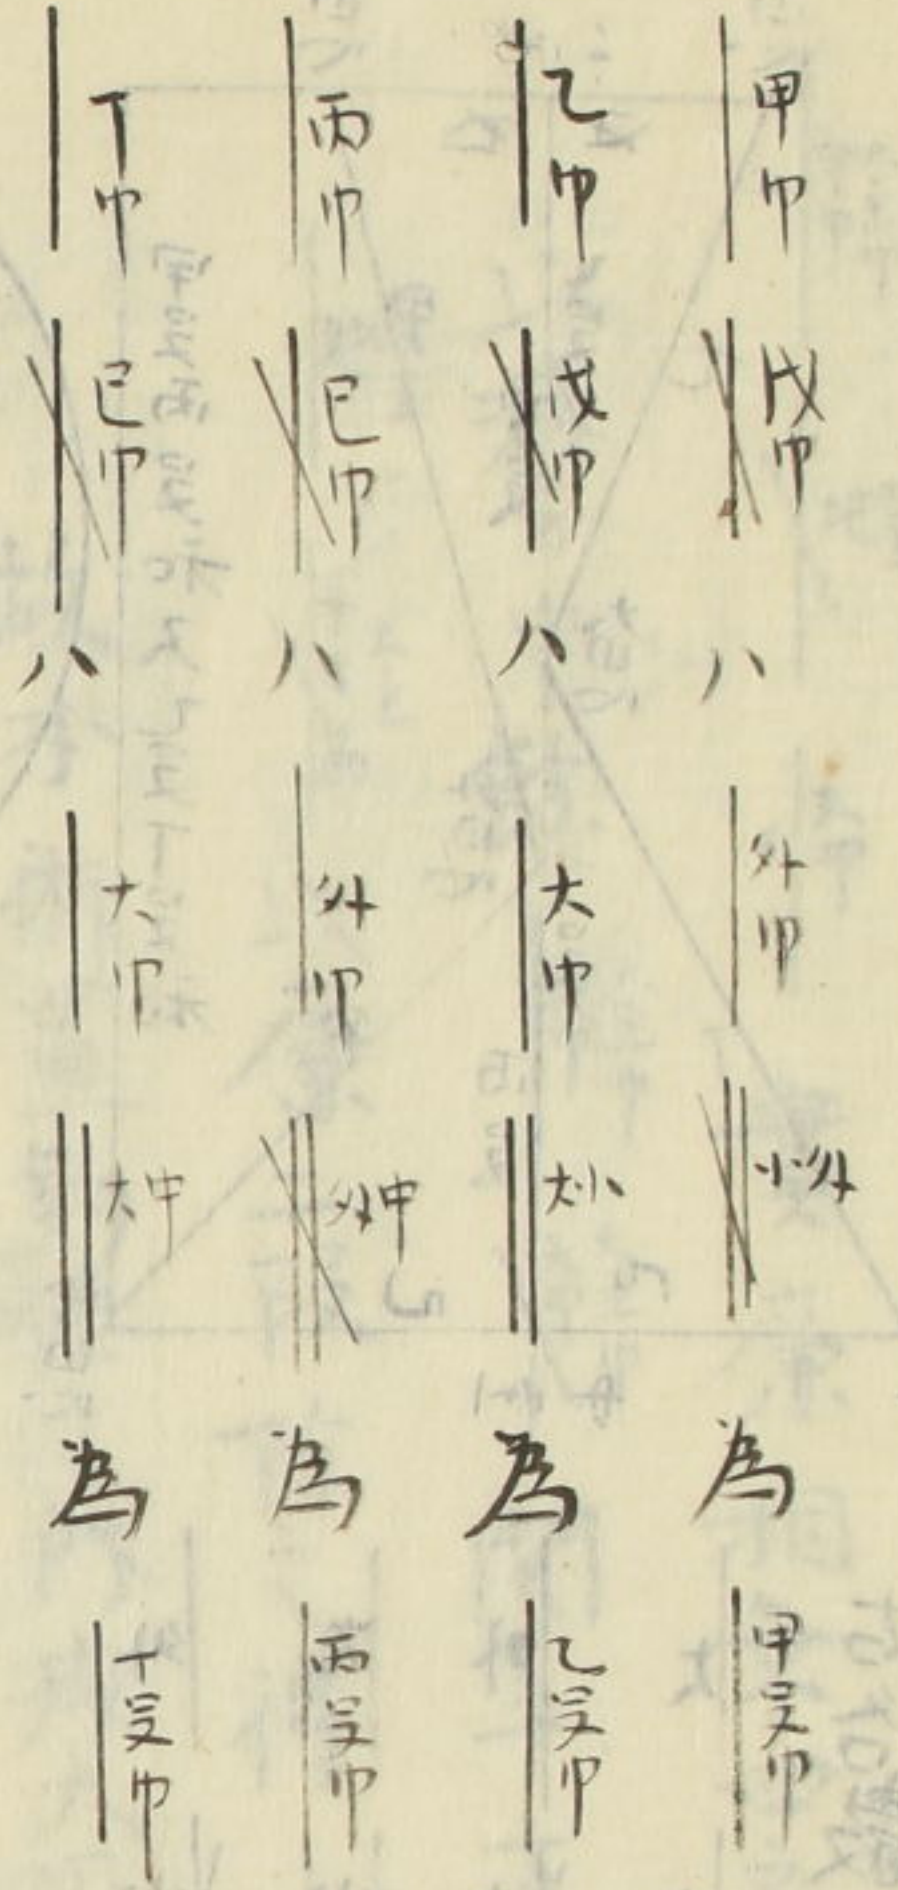 甲巾 戊巾 八 外巾 小外 為 甲㕛巾
乙巾 戊巾 八 大巾 大小 為 乙㕛巾
丙巾 巳巾 八 外巾 外中 為 丙㕛巾
丁巾 巳巾 八 大巾 大中 為 丁㕛巾